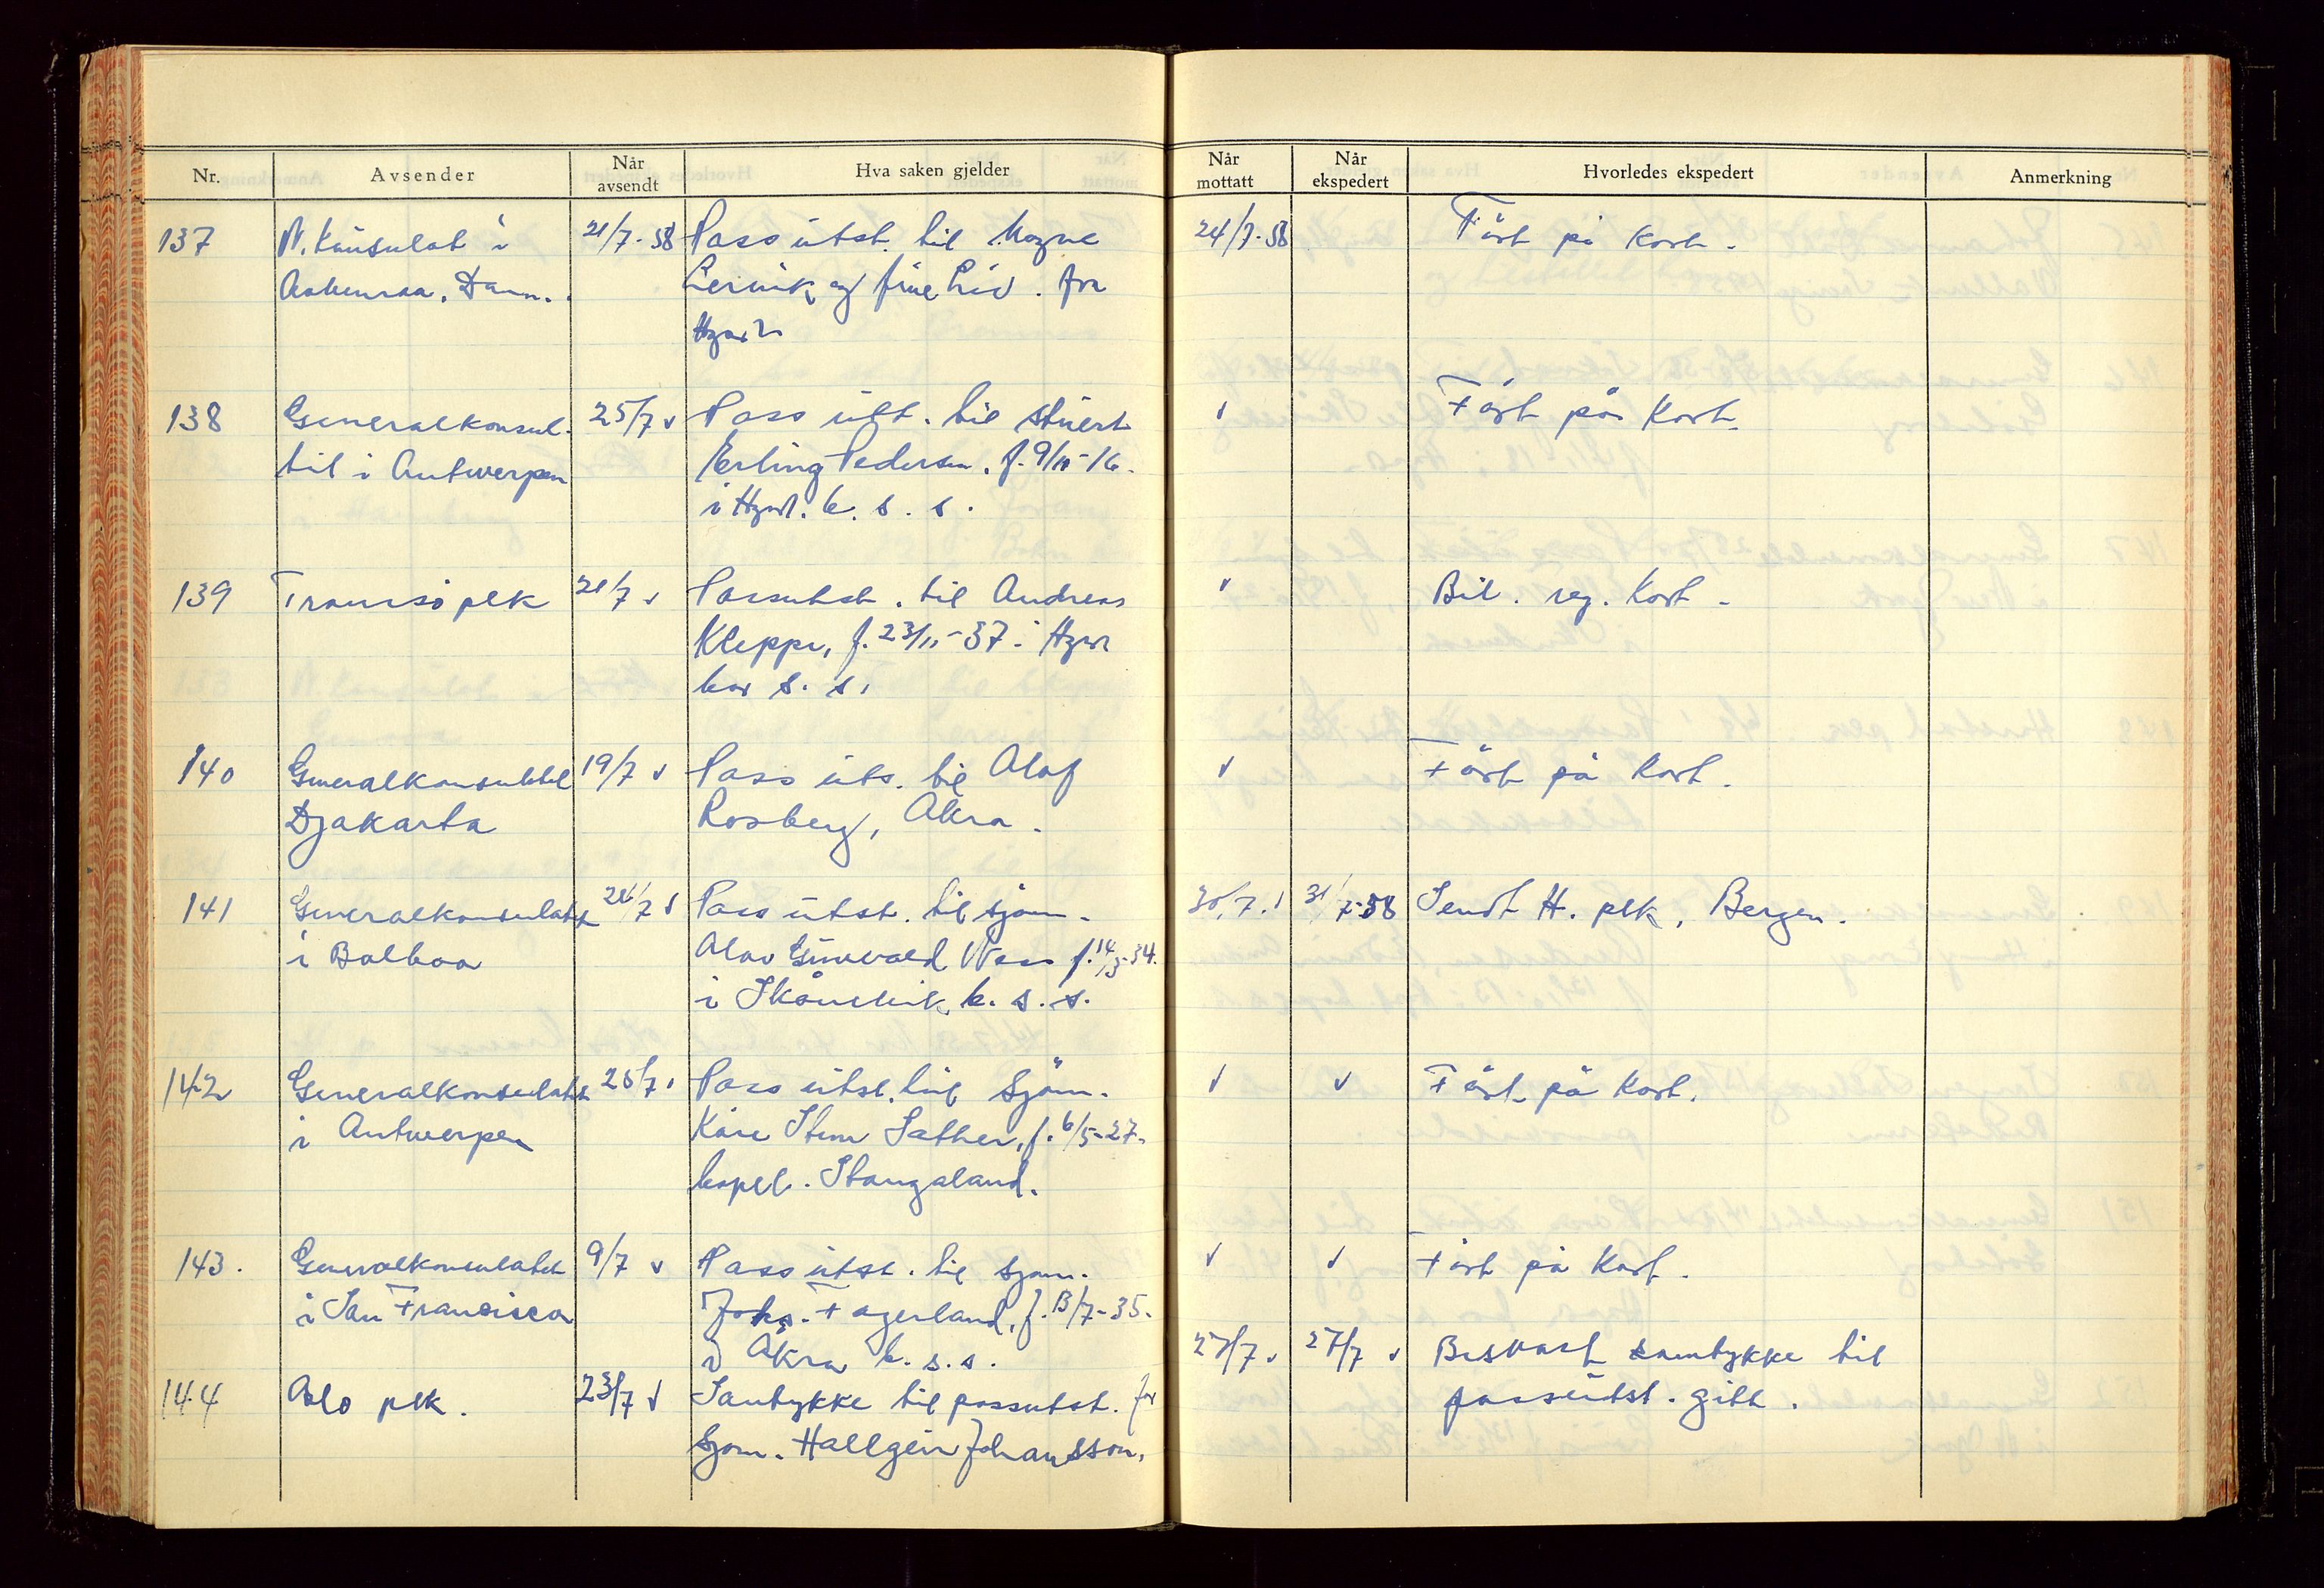 Nr. Avsender Når avsendt Hva saken gjelder Når mottatt Når ekspedert Hvorledes ekspedert Anmerkning
137 N. Konsulat i 21/7-58 Pass utst. til Magne 24/7-58 Ført på kort.
Aabenraa, Dan. og frue Liv. for
138 Generalkonsul- 25/7 v Pass utst. til stuert v Ført på kort.
til i Antwerpen Erling Pedersen, f. 9/10-16.
i Hgsd. b. s. s.
139 Tromsö plk 21/7 v Passutst. til Andreas v Bil. reg. kort.
Kleppe, f. 23/11-37 i
bor s. s.
140 Generalkonsulatet 19/7 v Pass uts. til Olaf v Ført på kort.
Djakarta Rosberg, Åkra.
141 Generalkonsulatet 7 v Pass utst. til sjøm. 30/7. v 31/7-58 Sendt H. plk, Bergen.
i Balboa Olav Gunvald Næss f. 14/3-34.
i Skånevik b. s. s.
142 Generalkonsulatet 25/7 v Pass utst. til sjøm. v v Ført på kort.
i Antwerpen Kåre Stene Sæther, f. 6/5-27.
bopel. Stangaland.
143. Generalkonsulatet 9/7 v Pass utst. til sjøm. v v Ført på kort.
i San Francisco Johs. Fagerland, f. 13/7-35.
i Åkra b. s. s.
144 Oslo plk. 23/7 v Samtykke til passutst. for 27/7 v 27/7 v Besvart samtykke til
sjøm. Hallgeir Johansson. passutst. gitt.